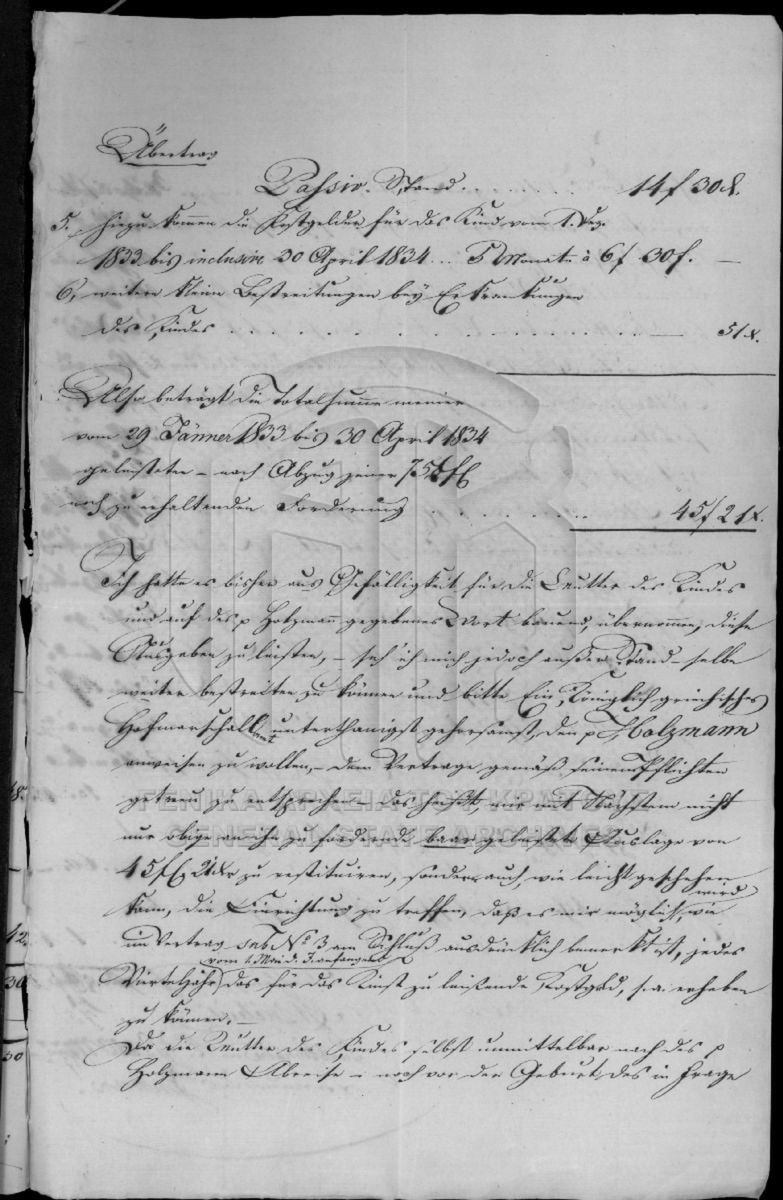 Übertrag
Passiv-Stand . . . . . . . . 14 f 30 x.
5. Hiezu kommen die Kostgelder für das Kind vom 1. Dez.
1833 bis inclusive 30 April 1834 ... 5 Monate à 6 f 30 f. —
6, weitere kleine Bestreitungen bey Erkrankungen
des Kindes . . . . . . . . . . . . . . . . — 51 x.
Also beträgt die Totalsumme meiner
vom 29 Jänner 1833 bis 30 April 1834
geleisteten – nach Abzug jener 75 f
noch zu erhaltenden Forderung . . . . . . . . 45 f 21 x.
Ich hatte es bisher aus Gefälligkeit für die Mutter des Kindes
und auf des p Holzmann gegebenes Wort bauend, übernommen, diese
Ausgaben zu leisten, – seh' ich mich jedoch außer Stand – selbe
weiter bestreiten zu können und bitte Ein Königlich griechisches
Hofmarschallamt unterthänigst gehorsamst, den p Holzmann
anweisen zu wollen, – dem Vertrage gemäß seinen Pflichten
getreu zu entsprechen – das heißt, mir mit Nächstem nicht
nur obige an ihn zu fordernde baar geleistete Auslage von
45 f 21 xr zu restituiren, sondern auch, wie leicht geschehen
kann, die Einrichtung zu treffen, daß es mir möglich wird, wie
im Vertrag sub No 3 am Schluß ausdrücklich bemerkt ist, jedes
Vierteljahr vom 1. Mai d. J. anfangend das für das Kind zu leistende Kostgeld, s. a. erheben
zu können. –
Da die Mutter des Kindes selbst unmittelbar nach des p
Holzmann Abreise – noch vor der Geburt des in Frage
ΓΕΝΙΚΑ ΑΡΧΕΙΑ ΤΟΥ ΚΡΑΤΟΥΣ
GENERAL STATE ARCHIVES